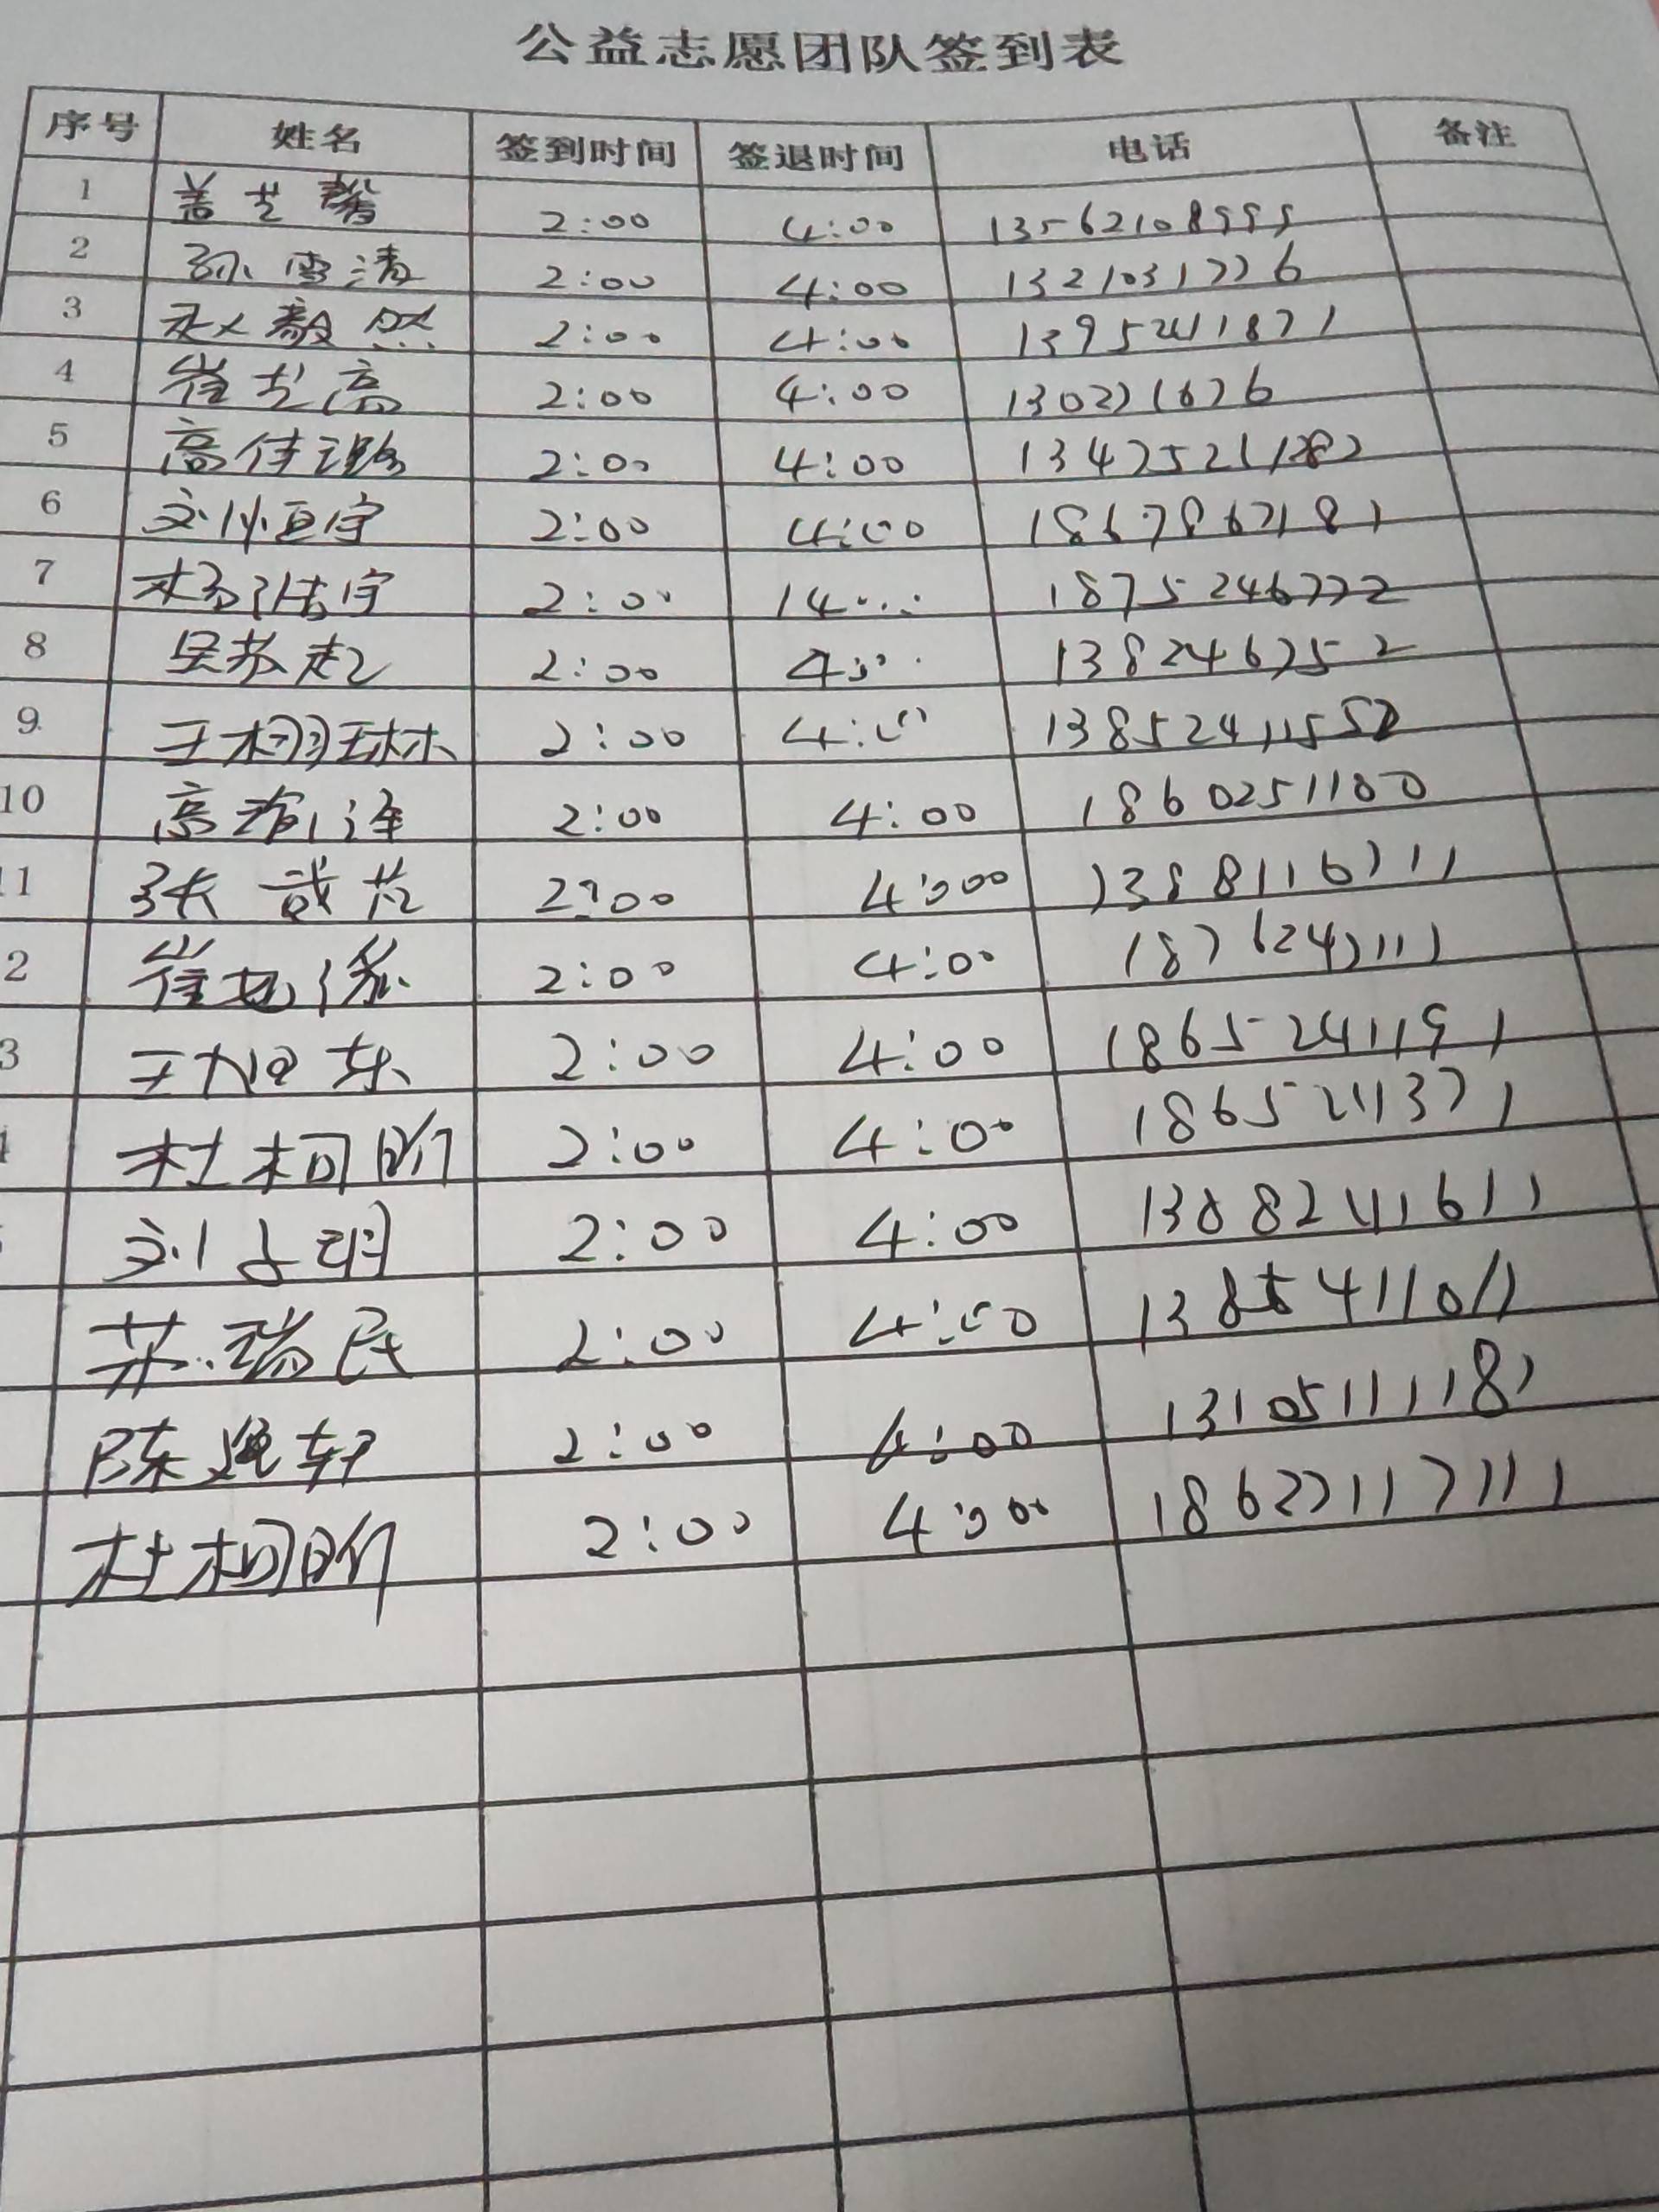 公益志愿团队签到表
序号 姓名 签到时间 签退时间 电话 备注
1 盖艺馨 2:00 4:00 13562108999
2 孙雪清 2:00 4:00 13210317726
3 赵毅然 2:00 4:00 13952411871
4 崔艺高 2:00 4:00
5 高佳璐 2:00 4:00 13475211282
6 刘恒宇 2:00 4:00 18678671181
7 杨浩宇 2:00 1875246772
8 吴苏赵 2:00 1382467252
9 王栩琳 2:00 13852411552
10 高 泽 2:00 4:00 1860251180
11 张 艺 2:00 4:00 13881167111
2 崔 2:00 4:00
3 王旭东 2:00 4:00 18652411191
杜柯昕 2:00 4:00 18652411371
刘 明 2:00 4:00 13882411611
苏瑞民 2:00 4:00
陈逸轩 2:00 4:00 13105111181
杜柯昕 2:00 4:00 186277117111